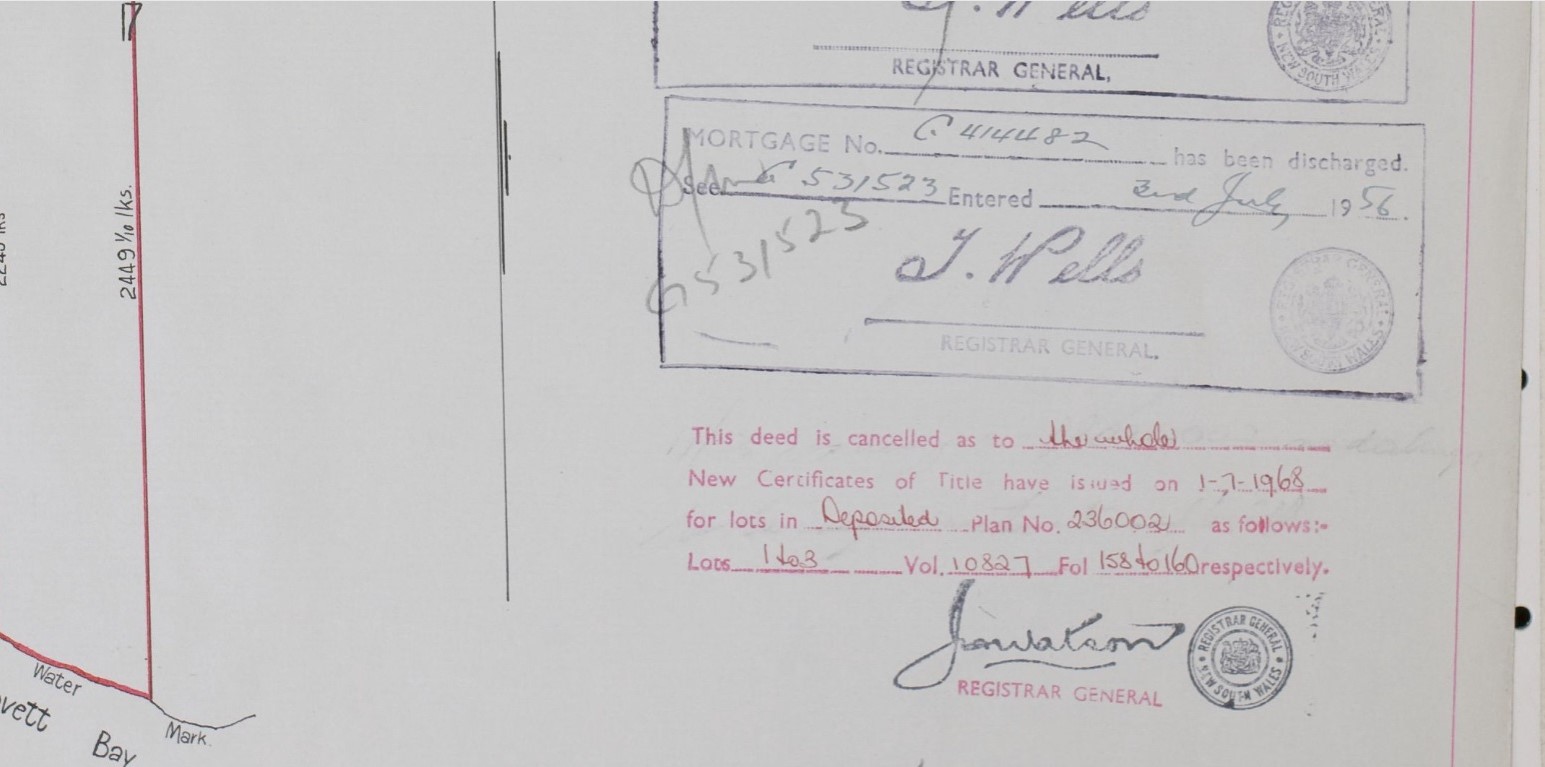 2449 1/10 lks.
Water
Mark.
vett
Bay
J. Wells
REGISTRAR GENERAL,
NEW SOUTH WALES
MORTGAGE No. G 414482 has been discharged.
See G 531523 Entered 3rd July 1956.
G531523
J. Wells
REGISTRAR GENERAL.
REGISTRAR GENERAL
NEW SOUTH WALES
This deed is cancelled as to the whole
New Certificates of Title have issued on 1-7-1968
for lots in Deposited Plan No. 236002 as follows:-
Lots 1 to 3 Vol. 10827 Fol 158 to 160 respectively.
Jawatson
REGISTRAR GENERAL
REGISTRAR GENERAL
NEW SOUTH WALES